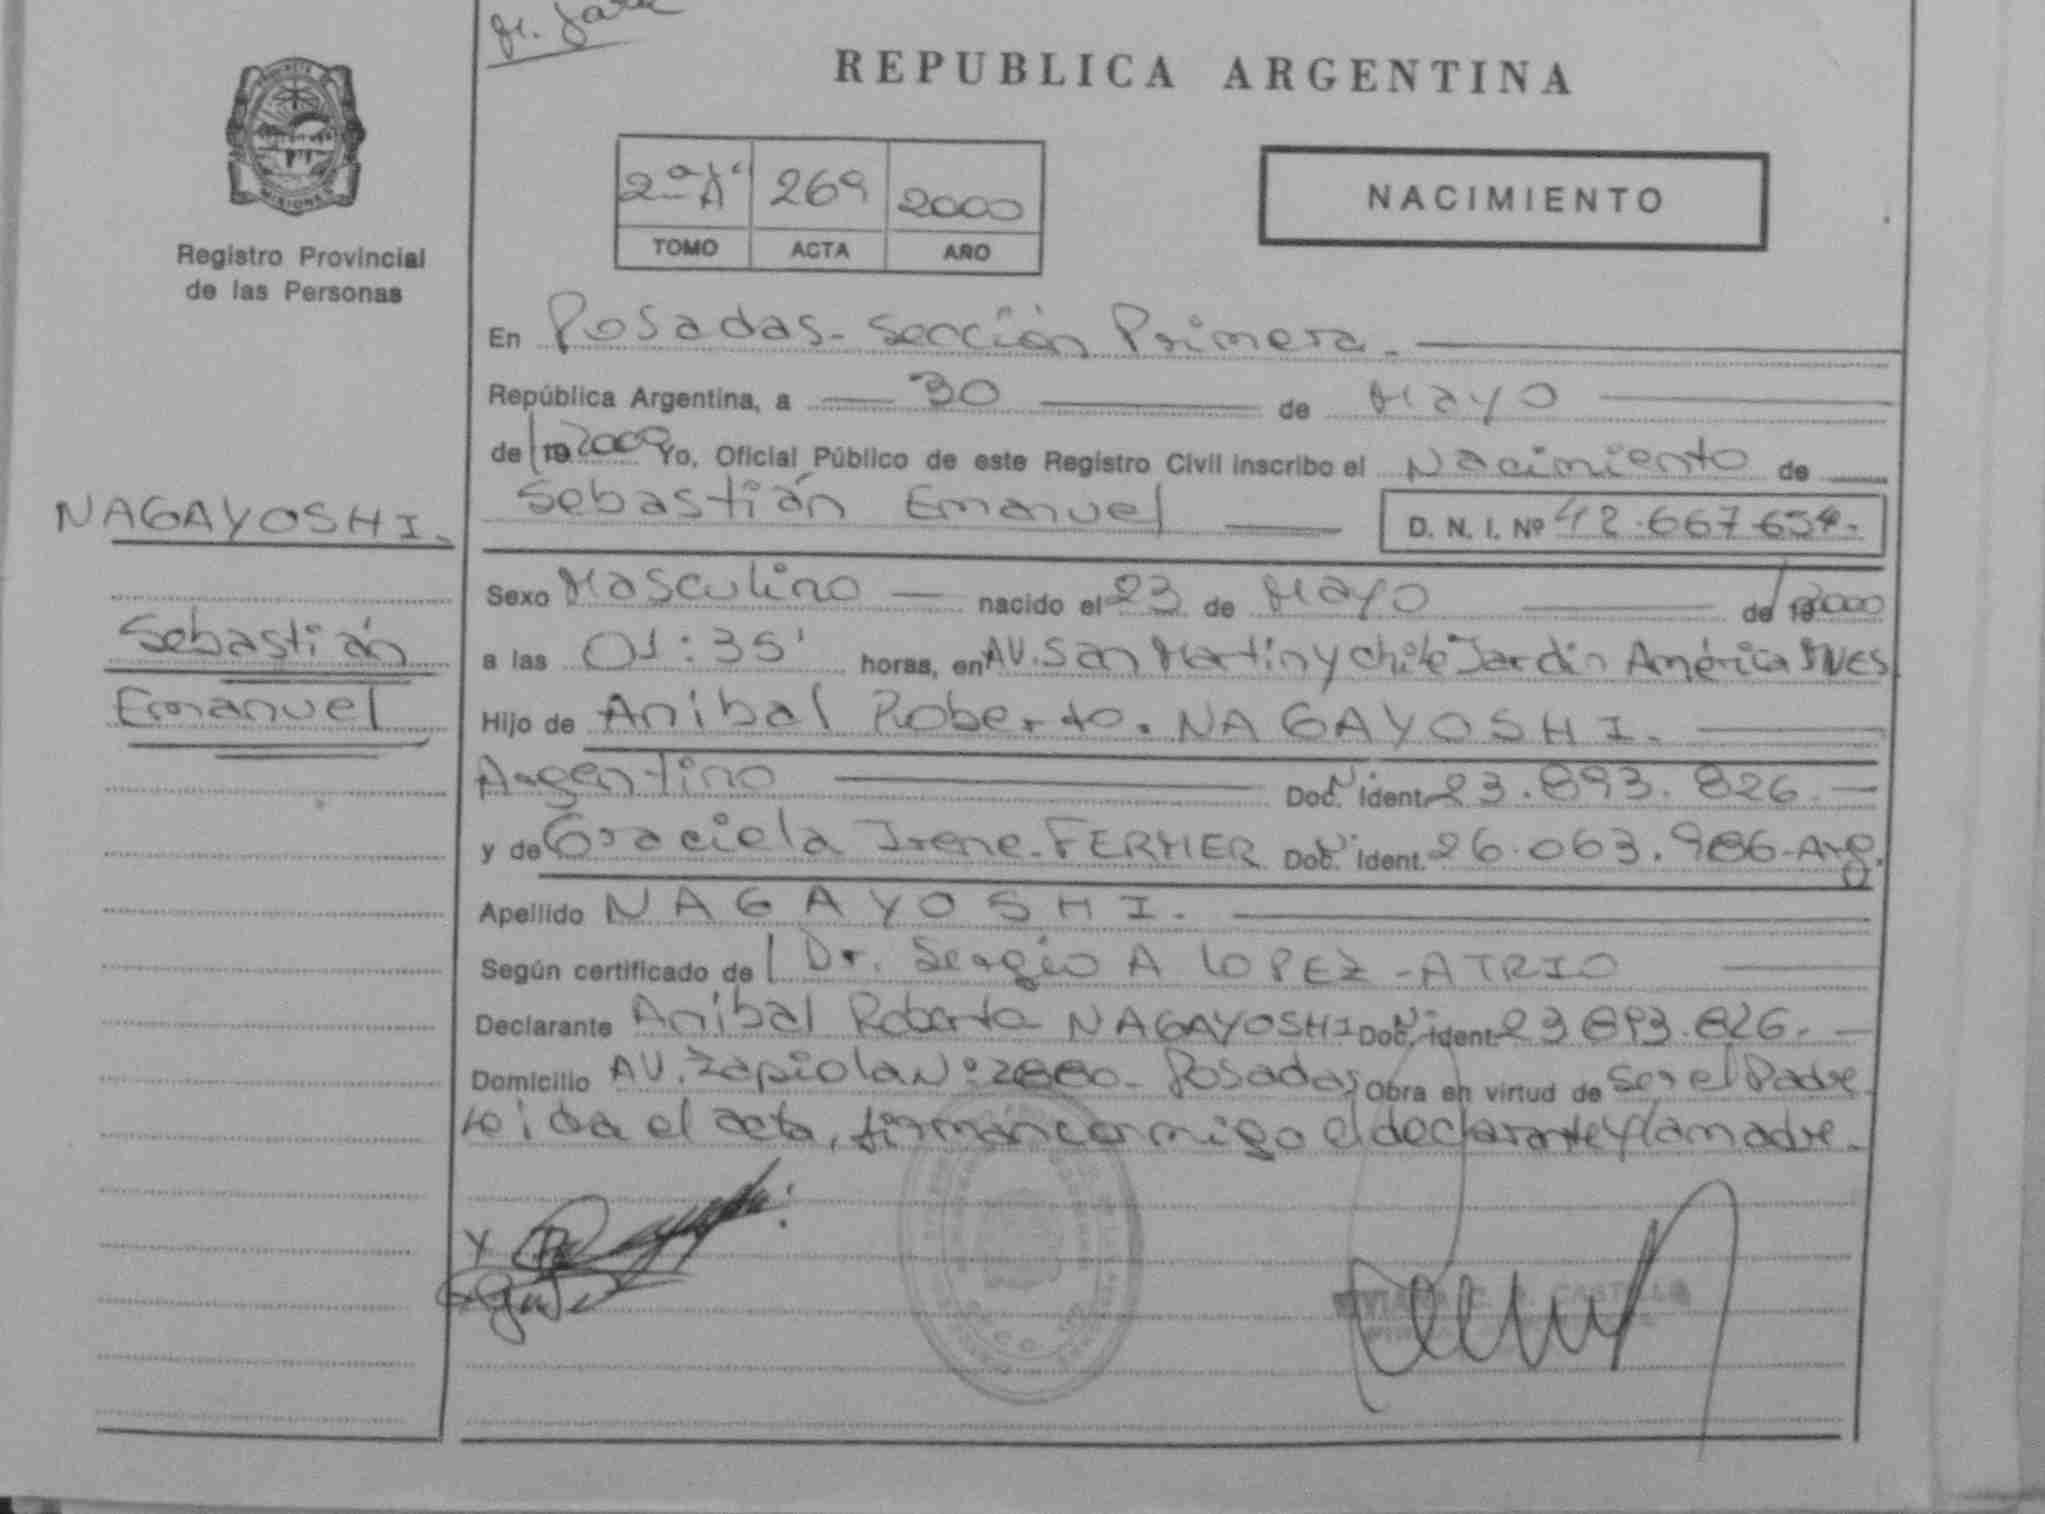 REPUBLICA ARGENTINA
MISIONES
Registro Provincial
de las Personas
2ª "A" 269 2000
TOMO ACTA AÑO
NACIMIENTO
NAGAYOSHI.
Sebastián
Emanuel
En Posadas - Sección Primera.
República Argentina, a 30 de Mayo
de 19 2000 Yo, Oficial Público de este Registro Civil inscribo el Nacimiento de
Sebastián Emanuel D. N. I. Nº 42.667.654.
Sexo Masculino nacido el 23 de Mayo de 19 2000
a las 01:35' horas, en AV. San Martin y Chile Jardín América
Hijo de Anibal Roberto. NAGAYOSHI.
Argentino Doc. Ident. 23.893.826.
y de Graciela Irene - FERMER Doc. Ident. 26.063.986 - Arg.
Apellido NAGAYOSHI.
Según certificado de Dr. Sergio A LOPEZ - ATRIO
Declarante Anibal Roberto NAGAYOSHI Doc. Ident. 23.893.826.
Domicilio AV. Zapiola Nº 2880 - Posadas Obra en virtud de Ser el Padre
Leida el acta, firman conmigo el declarante y la madre.
CASTILLO